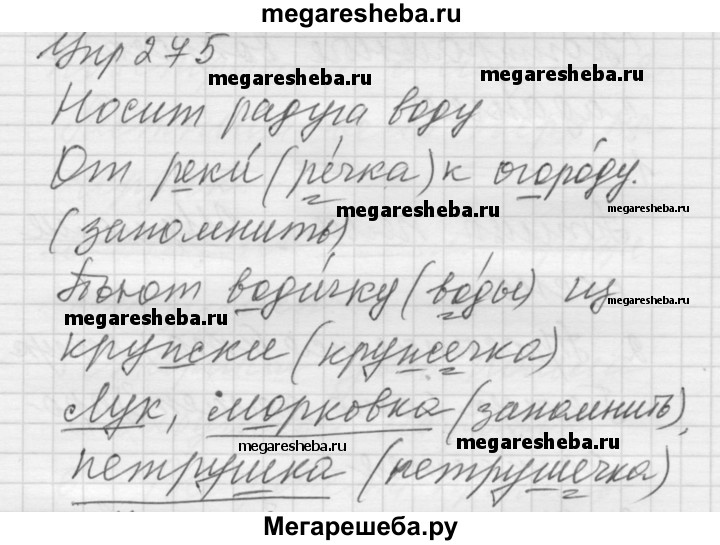 megaresheba.ru
Упр 275
megaresheba.ru
megaresheba.ru
Носит радуга воду
От реки́ (ре́чка) к огоро́ду.
megaresheba.ru
megaresheba.ru
(запомнить)
Пьют води́чку (во́ды) из
megaresheba.ru
megaresheba.ru
кружки (кружечка)
Лук, морковка (запомнить),
megaresheba.ru
megaresheba.ru
петрушка (петрушечка)
Мегарешеба.ру